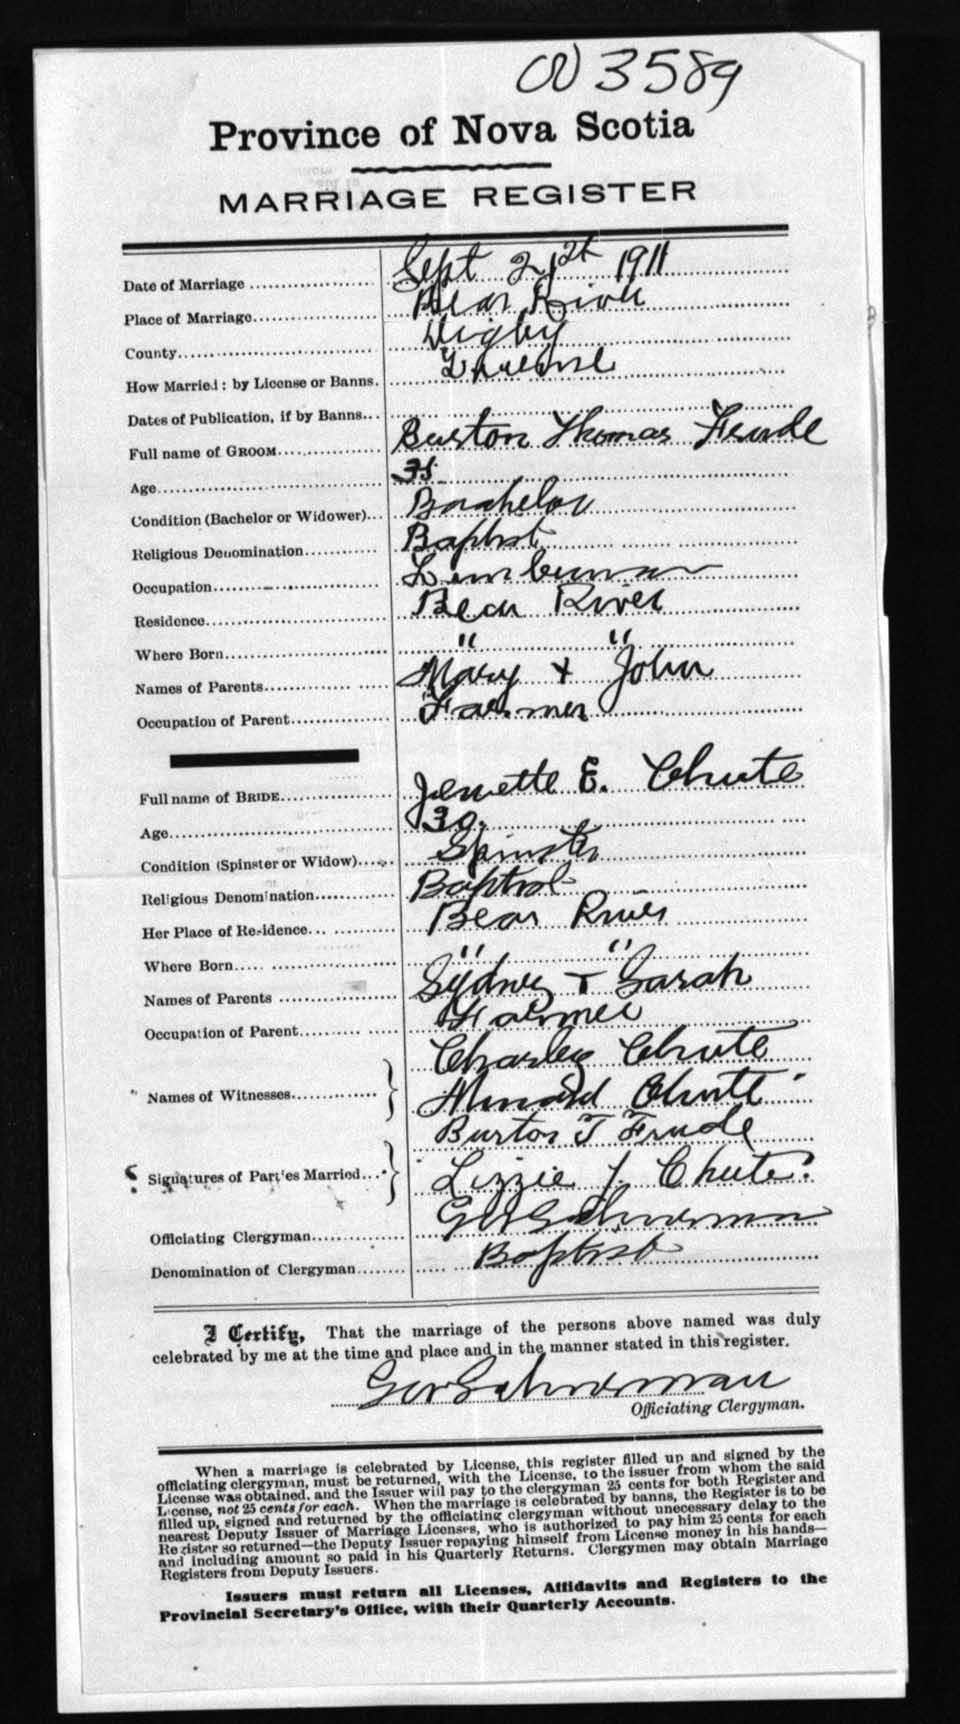 3589
Province of Nova Scotia
MARRIAGE REGISTER
Date of Marriage Sept 21st 1911
Place of Marriage Bear River
County Digby
How Married: by License or Banns. License
Dates of Publication, if by Banns
Full name of GROOM Burton Thomas Frude
Age
Condition (Bachelor or Widower) Bachelor
Religious Denomination Baptist
Occupation Lumberman
Residence Bear River
Where Born " "
Names of Parents Mary + John
Occupation of Parent Farmer
Full name of BRIDE Jennette E. Chute
Age 30.
Condition (Spinster or Widow) Spinster
Religious Denomination Baptist
Her Place of Residence Bear River
Where Born " "
Names of Parents Sydney + Sarah
Occupation of Parent Farmer
Names of Witnesses Charley Chute
Minard Chute
Signatures of Parties Married Burton T Frude
Lizzie J. Chute.
Officiating Clergyman
Denomination of Clergyman Baptist
I Certify, That the marriage of the persons above named was duly
celebrated by me at the time and place and in the manner stated in this register.
Officiating Clergyman.
When a marriage is celebrated by License, this register filled up and signed by the
officiating clergyman, must be returned, with the License, to the issuer from whom the said
License was obtained, and the Issuer will pay to the clergyman 25 cents for both Register and
License, not 25 cents for each. When the marriage is celebrated by banns, the Register is to be
filled up, signed and returned by the officiating clergyman without unnecessary delay to the
nearest Deputy Issuer of Marriage Licenses, who is authorized to pay him 25 cents for each
Register so returned—the Deputy Issuer repaying himself from License money in his hands—
and including amount so paid in his Quarterly Returns. Clergymen may obtain Marriage
Registers from Deputy Issuers.
Issuers must return all Licenses, Affidavits and Registers to the
Provincial Secretary's Office, with their Quarterly Accounts.